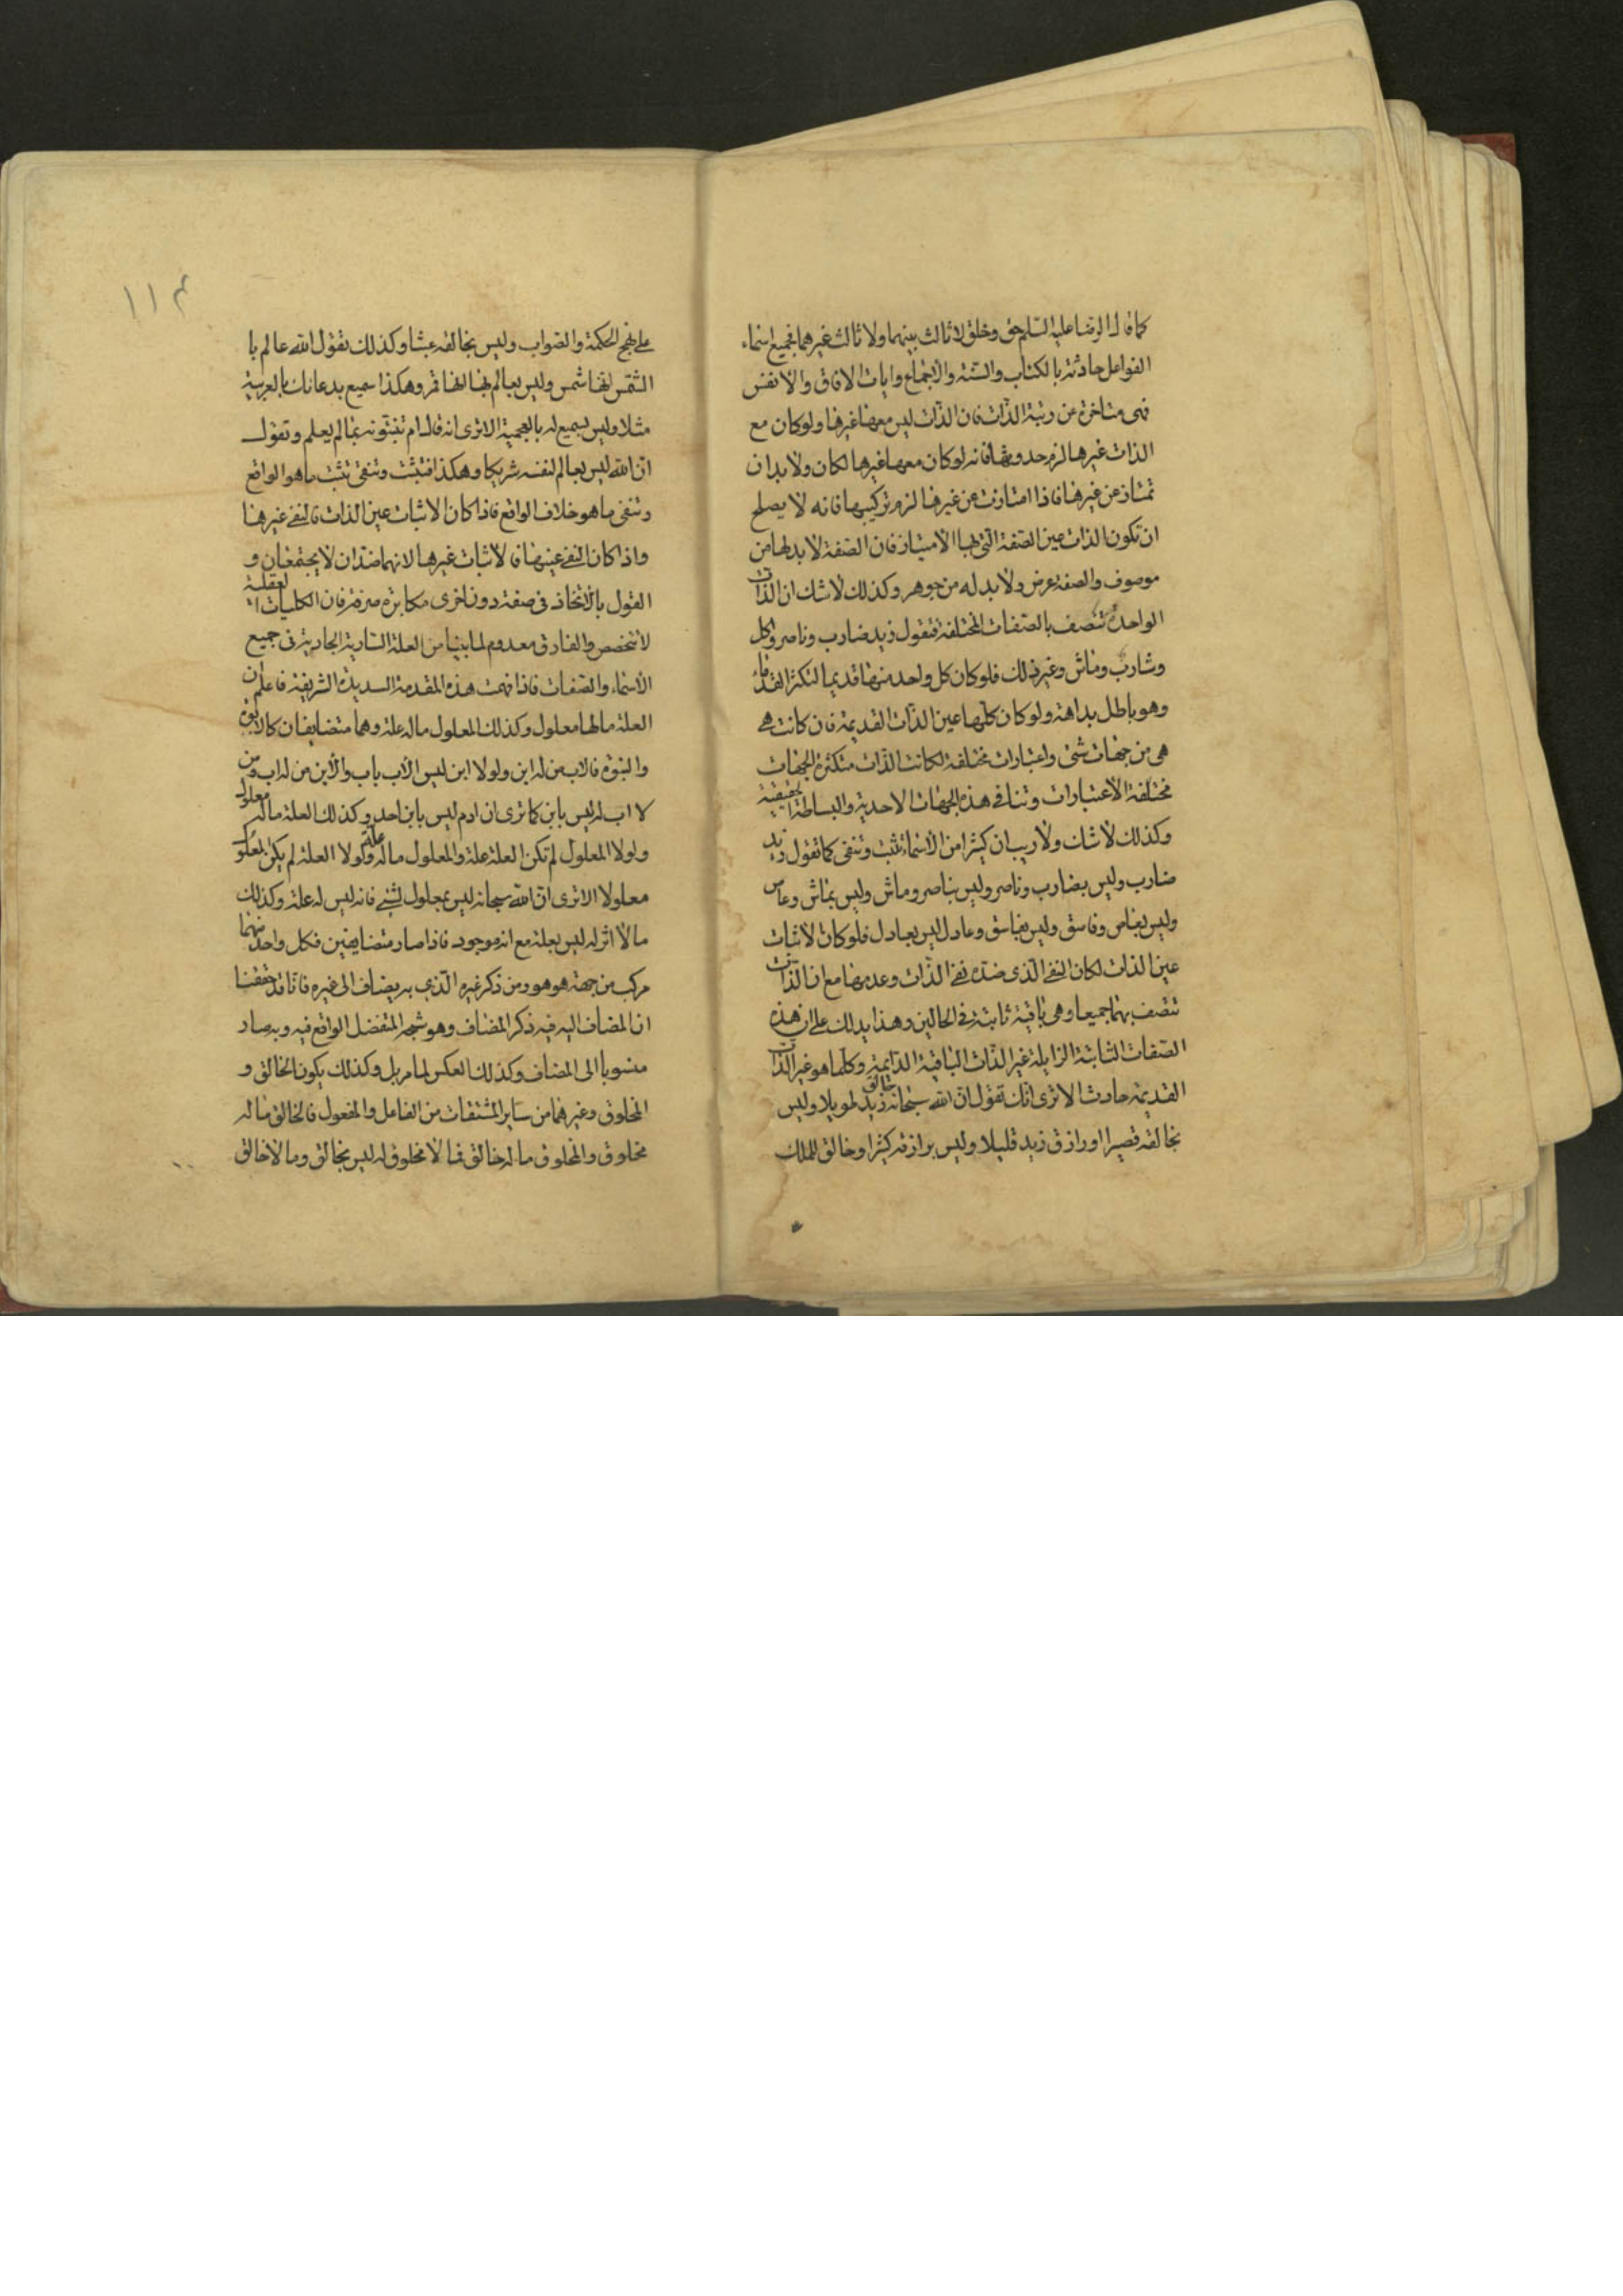 كما قال الرضا عليه السلم حق وخلق لا ثالث بينهما ولا ثالث غيرهما فجميع اسماء
الفواعل حادثة بالكتاب والسنة والاجماع وايات الافاق والانفس
فهى متاخرة عن رتبة الذات فان الذات ليس معها غيرها ولو كان مع
الذات غيرها لزم حدوثها فانه لو كان معها غيرها لكان ولا بد ان
تمتاز عن غيرها فاذا امتازت عن غيرها لزم تركيبها فانه لا يصلح
ان تكون الذات عين الصفة التى بها الامتياز فان الصفة لا بد لها من
موصوف والصفة عرض ولا بد له من جوهر وكذلك لا شك ان الذات
الواحدة تتصف بالصفات المختلفة فتقول زيد ضارب وناصر واكل
وشارب وماش وغير ذلك فلو كان كل واحد منها قديما لتكثر القدماء
وهو باطل بداهة ولو كان كلها عين الذات القديمة فان كانت هى
هى من جهات شتى واعتبارات مختلفة لكانت الذات متكثرة الجهات
مختلفة الاعتبارات وتنافى هذه الجهات الاحدية والبساطة الحقيقية
وكذلك لا شك ولا ريب ان كثيرا من الاسماء تثبت وتنفى كما تقول زيد
ضارب وليس بضارب وناصر وليس بناصر وماش وليس بماش وعاص
وليس بعاص وفاسق وليس بفاسق وعادل ليس بعادل فلو كان الاثبات
عين الذات لكان النفى الذى ضده نفى الذات وعدمها مع ان الذات
تتصف بهما جميعا وهى باقية ثابتة فى الحالين وهذا يدلك على ان هذه
الصفات الثابتة الزايلة غير الذات الباقية الدايمة وكلما هو غير الذات
القديمة حادث الا ترى انك تقول ان الله سبحانه خالق زيد طويلا وليس
بخالقه قصيرا او رازق زيد قليلا وليس برازقه كثيرا وخالق للملك
١١٣
على نهج الحكمة والصواب وليس بخالقه عبثا وكذلك تقول الله عالم با
الشمس انها شمس وليس بعالم بها انها قمر وهكذا سميع بدعائك بالعربية
مثلا وليس بسميع له بالعجمية الا ترى انه قال ام تنبئونه بما لم يعلم وتقول
ان الله ليس بعالم لنفسه شريكا وهكذا فتثبت وتنفى تثبت ما هو الواقع
وتنفى ما هو خلاف الواقع فاذا كان الاثبات عين الذات فالنفى غيرها
واذا كان النفى عينها فالاثبات غيرها لانهما ضدان لا يجتمعان و
القول بالاتحاد فى صفة دون اخرى مكابرة صرفة فان الكليات العقلية
لا تتخصص والفارق معدوم لما بينا من العلة السارية الجارية فى جميع
الاسماء والصفات فاذا فهمت هذه المقدمة السديدة الشريفة فاعلم ان
العلة ما لها معلول وكذلك المعلول ما له علة وهما متضايفان كالابوة
والبنوة فالاب من له ابن ولولا ابن ليس الاب باب والابن من له اب ومن
لا اب له ليس بابن كما ترى ان ادم ليس بابن احد وكذلك العلة ما له معلول
ولولا المعلول لم تكن العلة علة والمعلول ما له علة ولولا العلة لم يكن المعلول
معلولا الا ترى ان الله سبحانه ليس بمعلول لشىء فانه ليس له علة وكذلك
ما لا اثر له ليس بعلة مع انه موجود فاذا صار متضايفين فكل واحد منهما
مركب من جهة هو هو ومن ذكر غيره الذى به يضاف الى غيره فانا قد حققنا
ان المضاف اليه فيه ذكر المضاف وهو شبحه المنفصل الواقع فيه وبه صار
منسوبا الى المضاف وكذلك العكس لما مر بل وكذلك يكون الخالق و
المخلوق وغيرهما من ساير المشتقات من الفاعل والمفعول فالخالق ما له
مخلوق والمخلوق ما له خالق فما لا مخلوق له ليس بخالق وما لا خالق